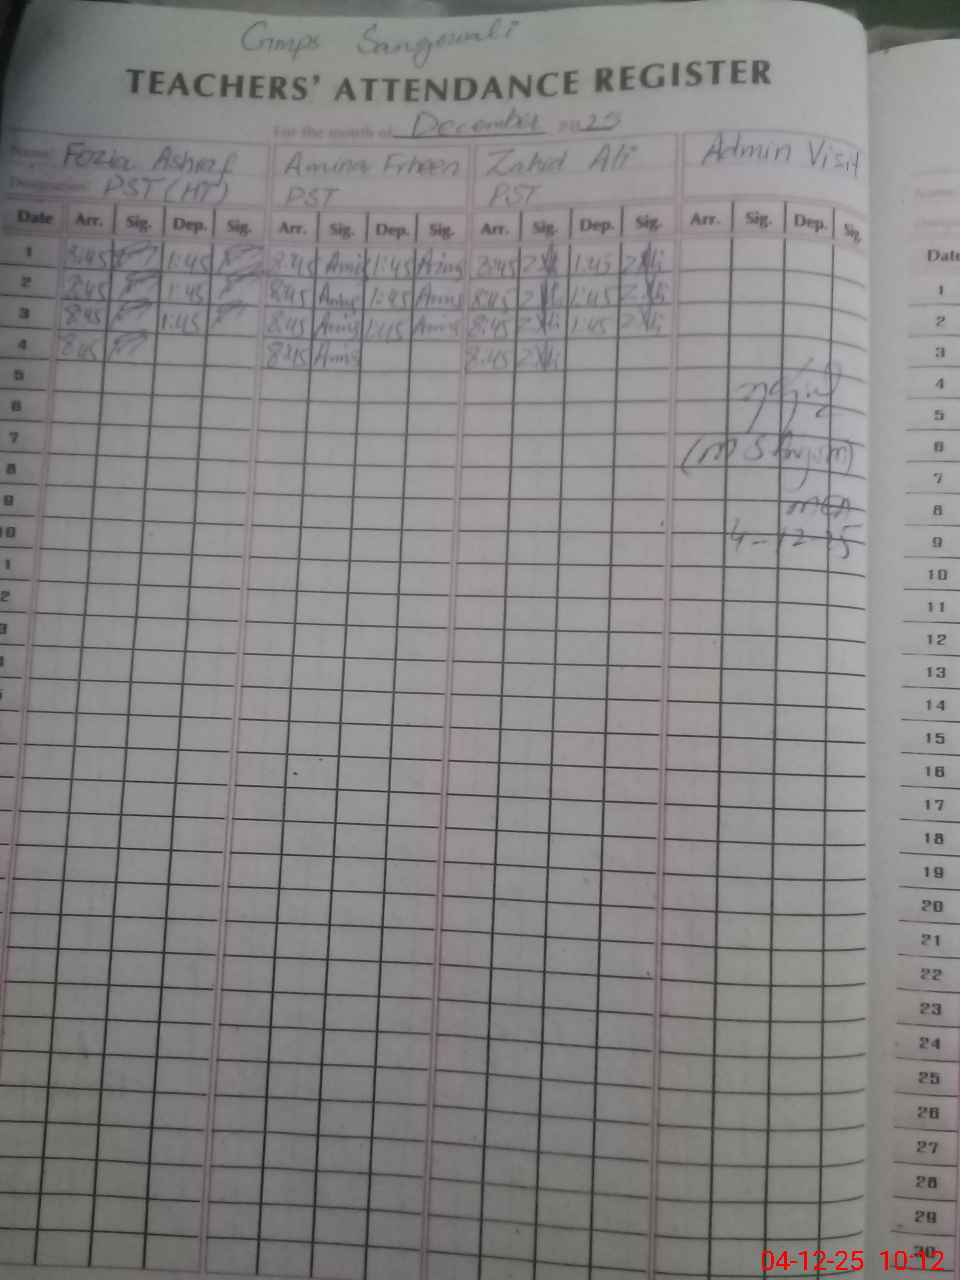 Gmps Sangowali
TEACHERS' ATTENDANCE REGISTER
For the month of December 2025
Name Fozia Ashraf Amina Zahid Ali Admin Visit
Designation PST (HT) PST PST
Date Arr. Sig. Dep. Sig. Arr. Sig. Dep. Sig. Arr. Sig. Dep. Sig. Arr. Sig. Dep. Sig.
1 8:45 1:45 8:45 1:45 8:45 1:45
2 8:45 1:45 8:45 1:45 8:45 1:45
3 8:45 1:45 8:45 1:45 8:45 1:45
4 8:45 8:45 8:45
5
6
7
8
9
10
1
2
3
4
5
MEA
4-12-25
Date
1
2
3
4
5
6
7
8
9
10
11
12
13
14
15
16
17
18
19
20
21
22
23
24
25
26
27
28
29
30
04-12-25 10:12